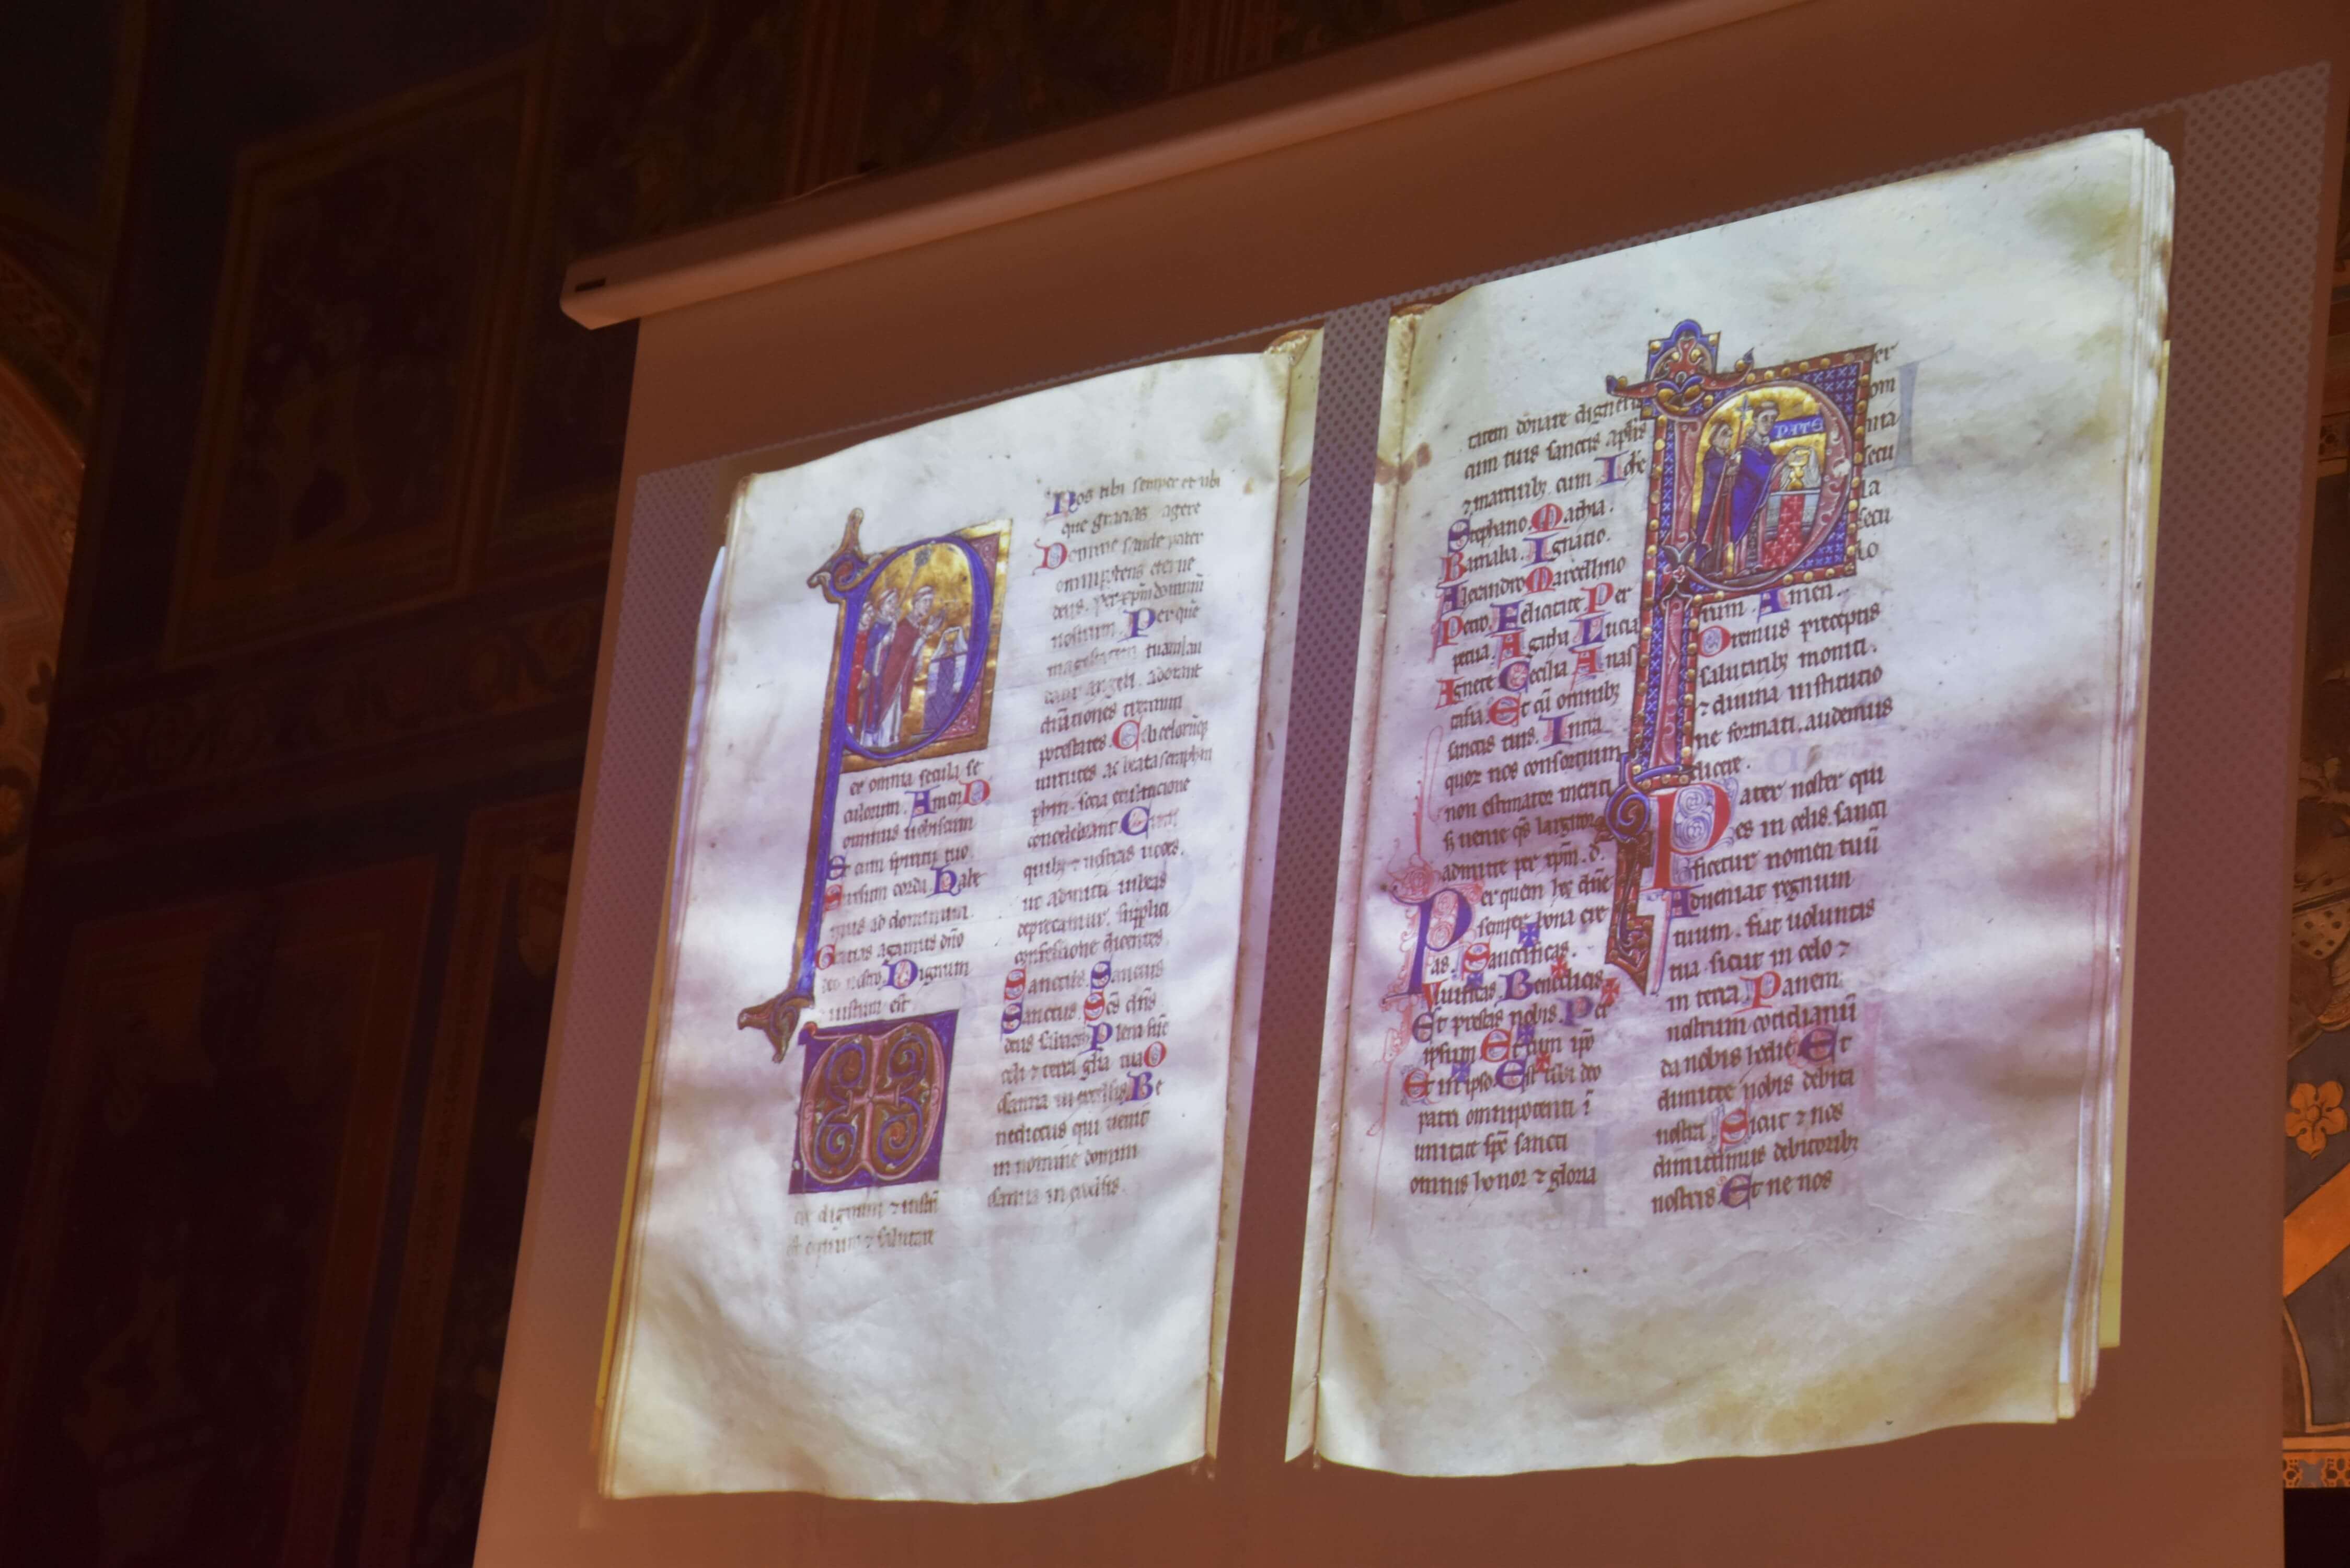 er omnia secula se
culorum. Amen D
ominus uobiscum
Et cum spiritu tuo
Sursum corda. Habe
mus ad dominum.
Gratias agamus dño
deo nostro. Dignum
iustum est
e dignum ⁊ iustū
est equum ⁊ salutare
Nos tibi semper et ubi
que gracias agere
Domine sancte pater
omnipotens eterne
deus. Per xp̄m dominū
nostrum. Per quē
maiestatem tuam lau
dant angeli. adorant
dn̄ationes tremunt
potestates. Celi celorūq
uirtutes. ac beata seraphin
phin. socia exultacione
concelebrant. Cum
quibꝫ ⁊ nostras uoces.
ut admitti iubeas
deprecamur. supplici
confessione dicentes.
Sanctus. Sanctus
Sanctus. Scs dn̄s
deus sabaoth. Pleni sūt
celi ⁊ terra glia tua O
sanna in excelsis Be
nedictus qui uenit
in nomine domini
Osanna in excelsis.
tatem donare digneris
cum tuis sanctis aplis
⁊ martiribꝫ cum Iohe
Stephano. Mathia.
Barnaba. Ignatio.
Alexandro Marcellino
Petro. Felicitate Per
petua. Agatha Lucia
Agnete Cecilia Anas
tasia. Et cū omnibꝫ
sanctis tuis. Intra
quor nos consortium
non estimator meriti
s; uenie qs largitor
admitte per xp̄m. d.
Per quem hec dn̄e
semper bona cre
as. Sanctificas.
Viuificas. Benedicis
Et prestas nobis. Per
ipsum Et cum ipo
Et in ipso. Est tibi deo
patri omnipotenti ī
unitate sp̄c sancti
omnis honor ⁊ gloria
PATE
er
om
nia
secu
la
secu
lo
rum. Amen.
Oremus preceptis
salutaribꝫ moniti.
⁊ diuina institutio
ne formati. audemus
dicere.
Pater noster qui
es in celis. sancti
ficetur nomen tuū
Adueniat regnum
tuum. fiat uoluntas
tua. sicut in celo ⁊
in terra. Panem
nostrum cotidianū
da nobis hodie Et
dimitte nobis debita
nostra Sicut ⁊ nos
dimittimus debitoribꝫ
nostris. Et ne nos